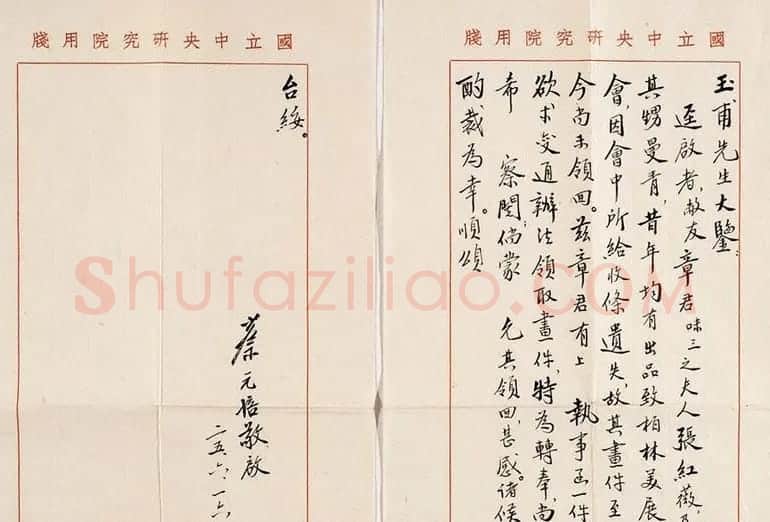 國立中央研究院用牋
玉甫先生大鑒：
逕啟者，敝友章君味三之夫人張紅薇，及
其甥曼青，昔年均有出品致柏林美展
會，因會中所給收條遺失，故其畫件至
今尚未領回。茲章君有上 執事函一件
欲求變通辦法領取畫件，特為轉奉，尚
希 察閱，倘蒙 允其領回，甚感。諸候
酌裁為幸。順頌
國立中央研究院用牋
台綏。
蔡元培敬啟
二五、六、一六
Shufaziliao.COM